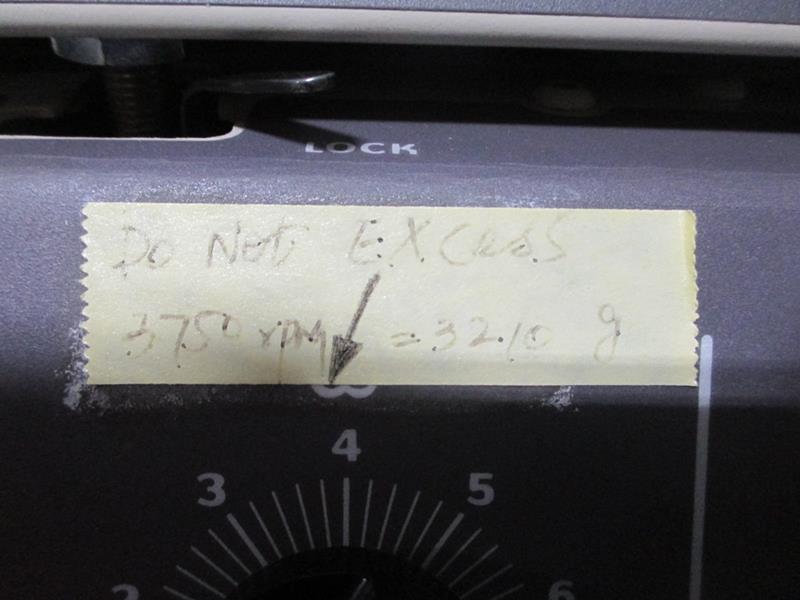 LOCK
Do Not EXCess
3750 rpm = 3210 g
4
3 5
2 6